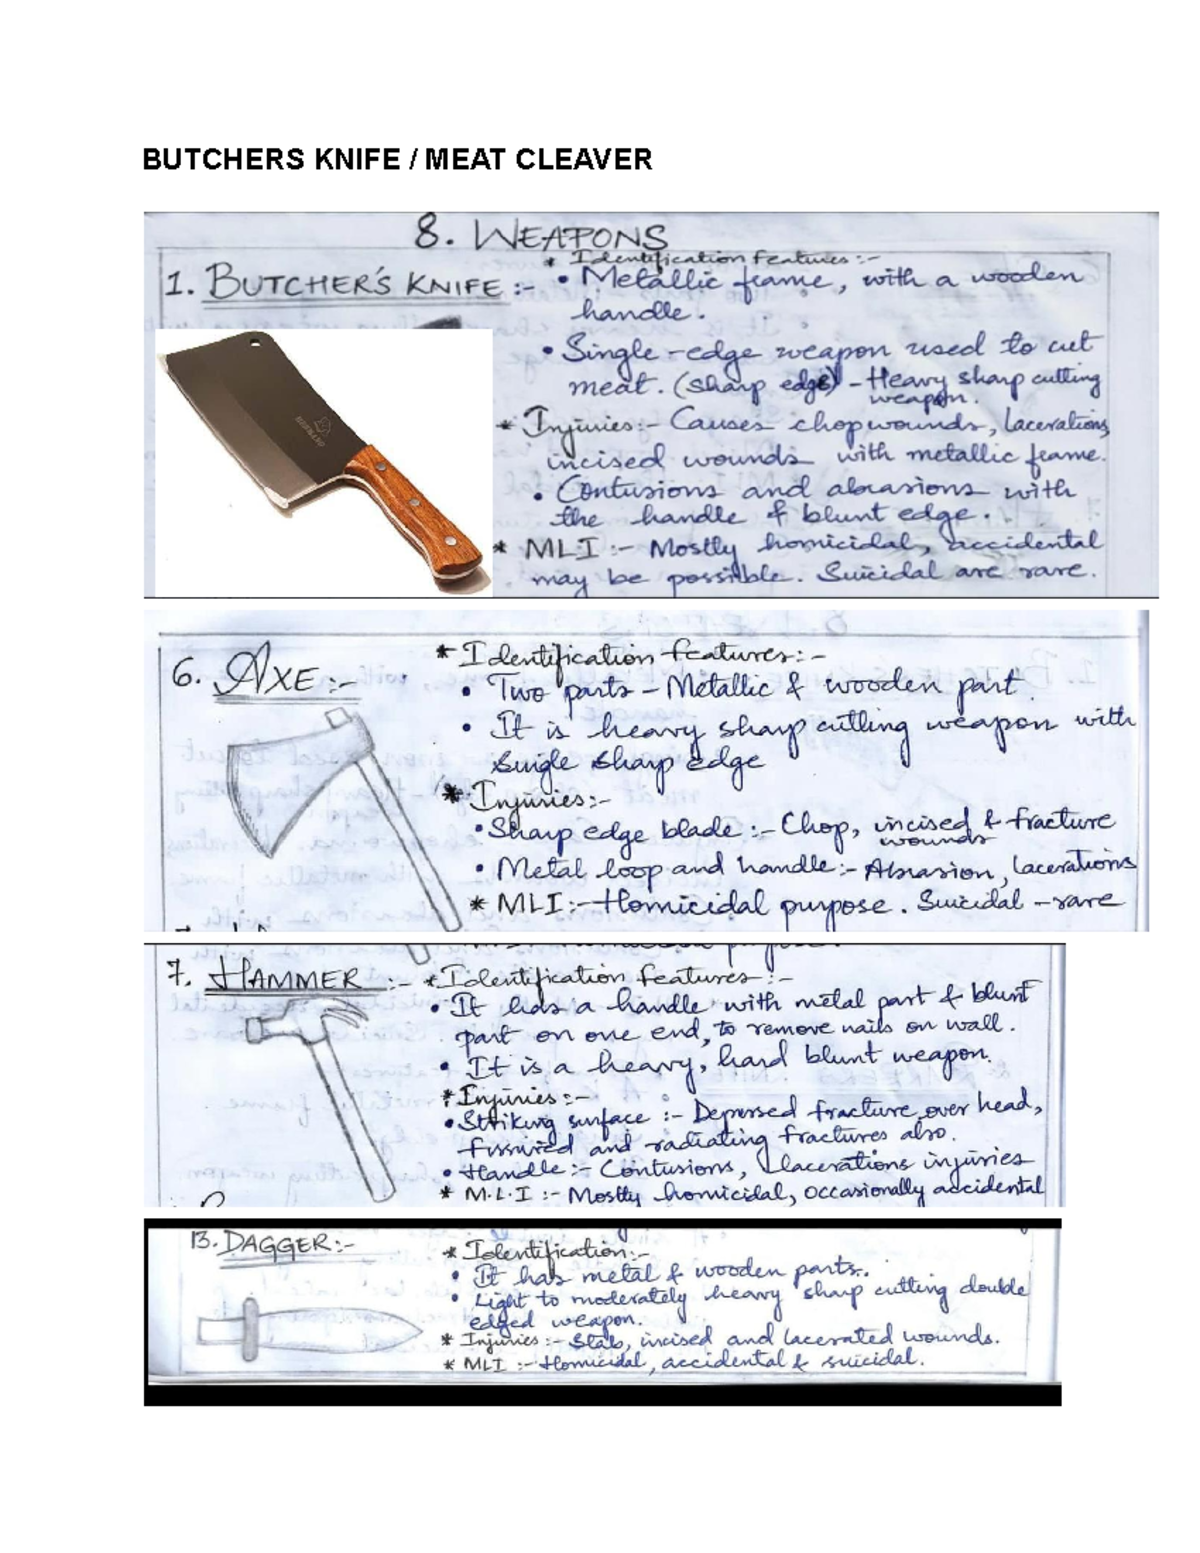 BUTCHERS KNIFE / MEAT CLEAVER
8. WEAPONS
1. BUTCHER'S KNIFE :-
* Identification features :-
• Metallic frame, with a wooden
handle.
• Single-edge weapon used to cut
meat. (sharp edge) - Heavy sharp cutting
weapon.
* Injuries:- Causes chopwounds, lacerations,
incised wounds with metallic frame.
• Contusions and abrasions with
the handle & blunt edge.
* MLI :- Mostly homicidal, accidental
may be possible. Suicidal are rare.
6. AXE :-
* Identification features :-
• Two parts - Metallic & wooden part
• It is heavy sharp cutting weapon with
single sharp edge
* Injuries:-
• Sharp edge blade :- Chop, incised & fracture
wounds
• Metal loop and handle:- Abrasion, lacerations
* MLI:- Homicidal purpose. Suicidal - rare
7. HAMMER :-
* Identification features :-
• It has a handle with metal part & blunt
part on one end, to remove nails on wall.
• It is a heavy, hard blunt weapon.
* Injuries :-
• Striking surface :- Depressed fracture over head,
fissured and radiating fractures also.
• Handle :- Contusions, lacerations injuries
* M.L.I :- Mostly homicidal, occasionally accidental
13. DAGGER:-
* Identification:-
• It has metal & wooden parts.
• Light to moderately heavy sharp cutting double
edged weapon.
* Injuries :- Stab, incised and lacerated wounds.
* MLI :- Homicidal, accidental & suicidal.